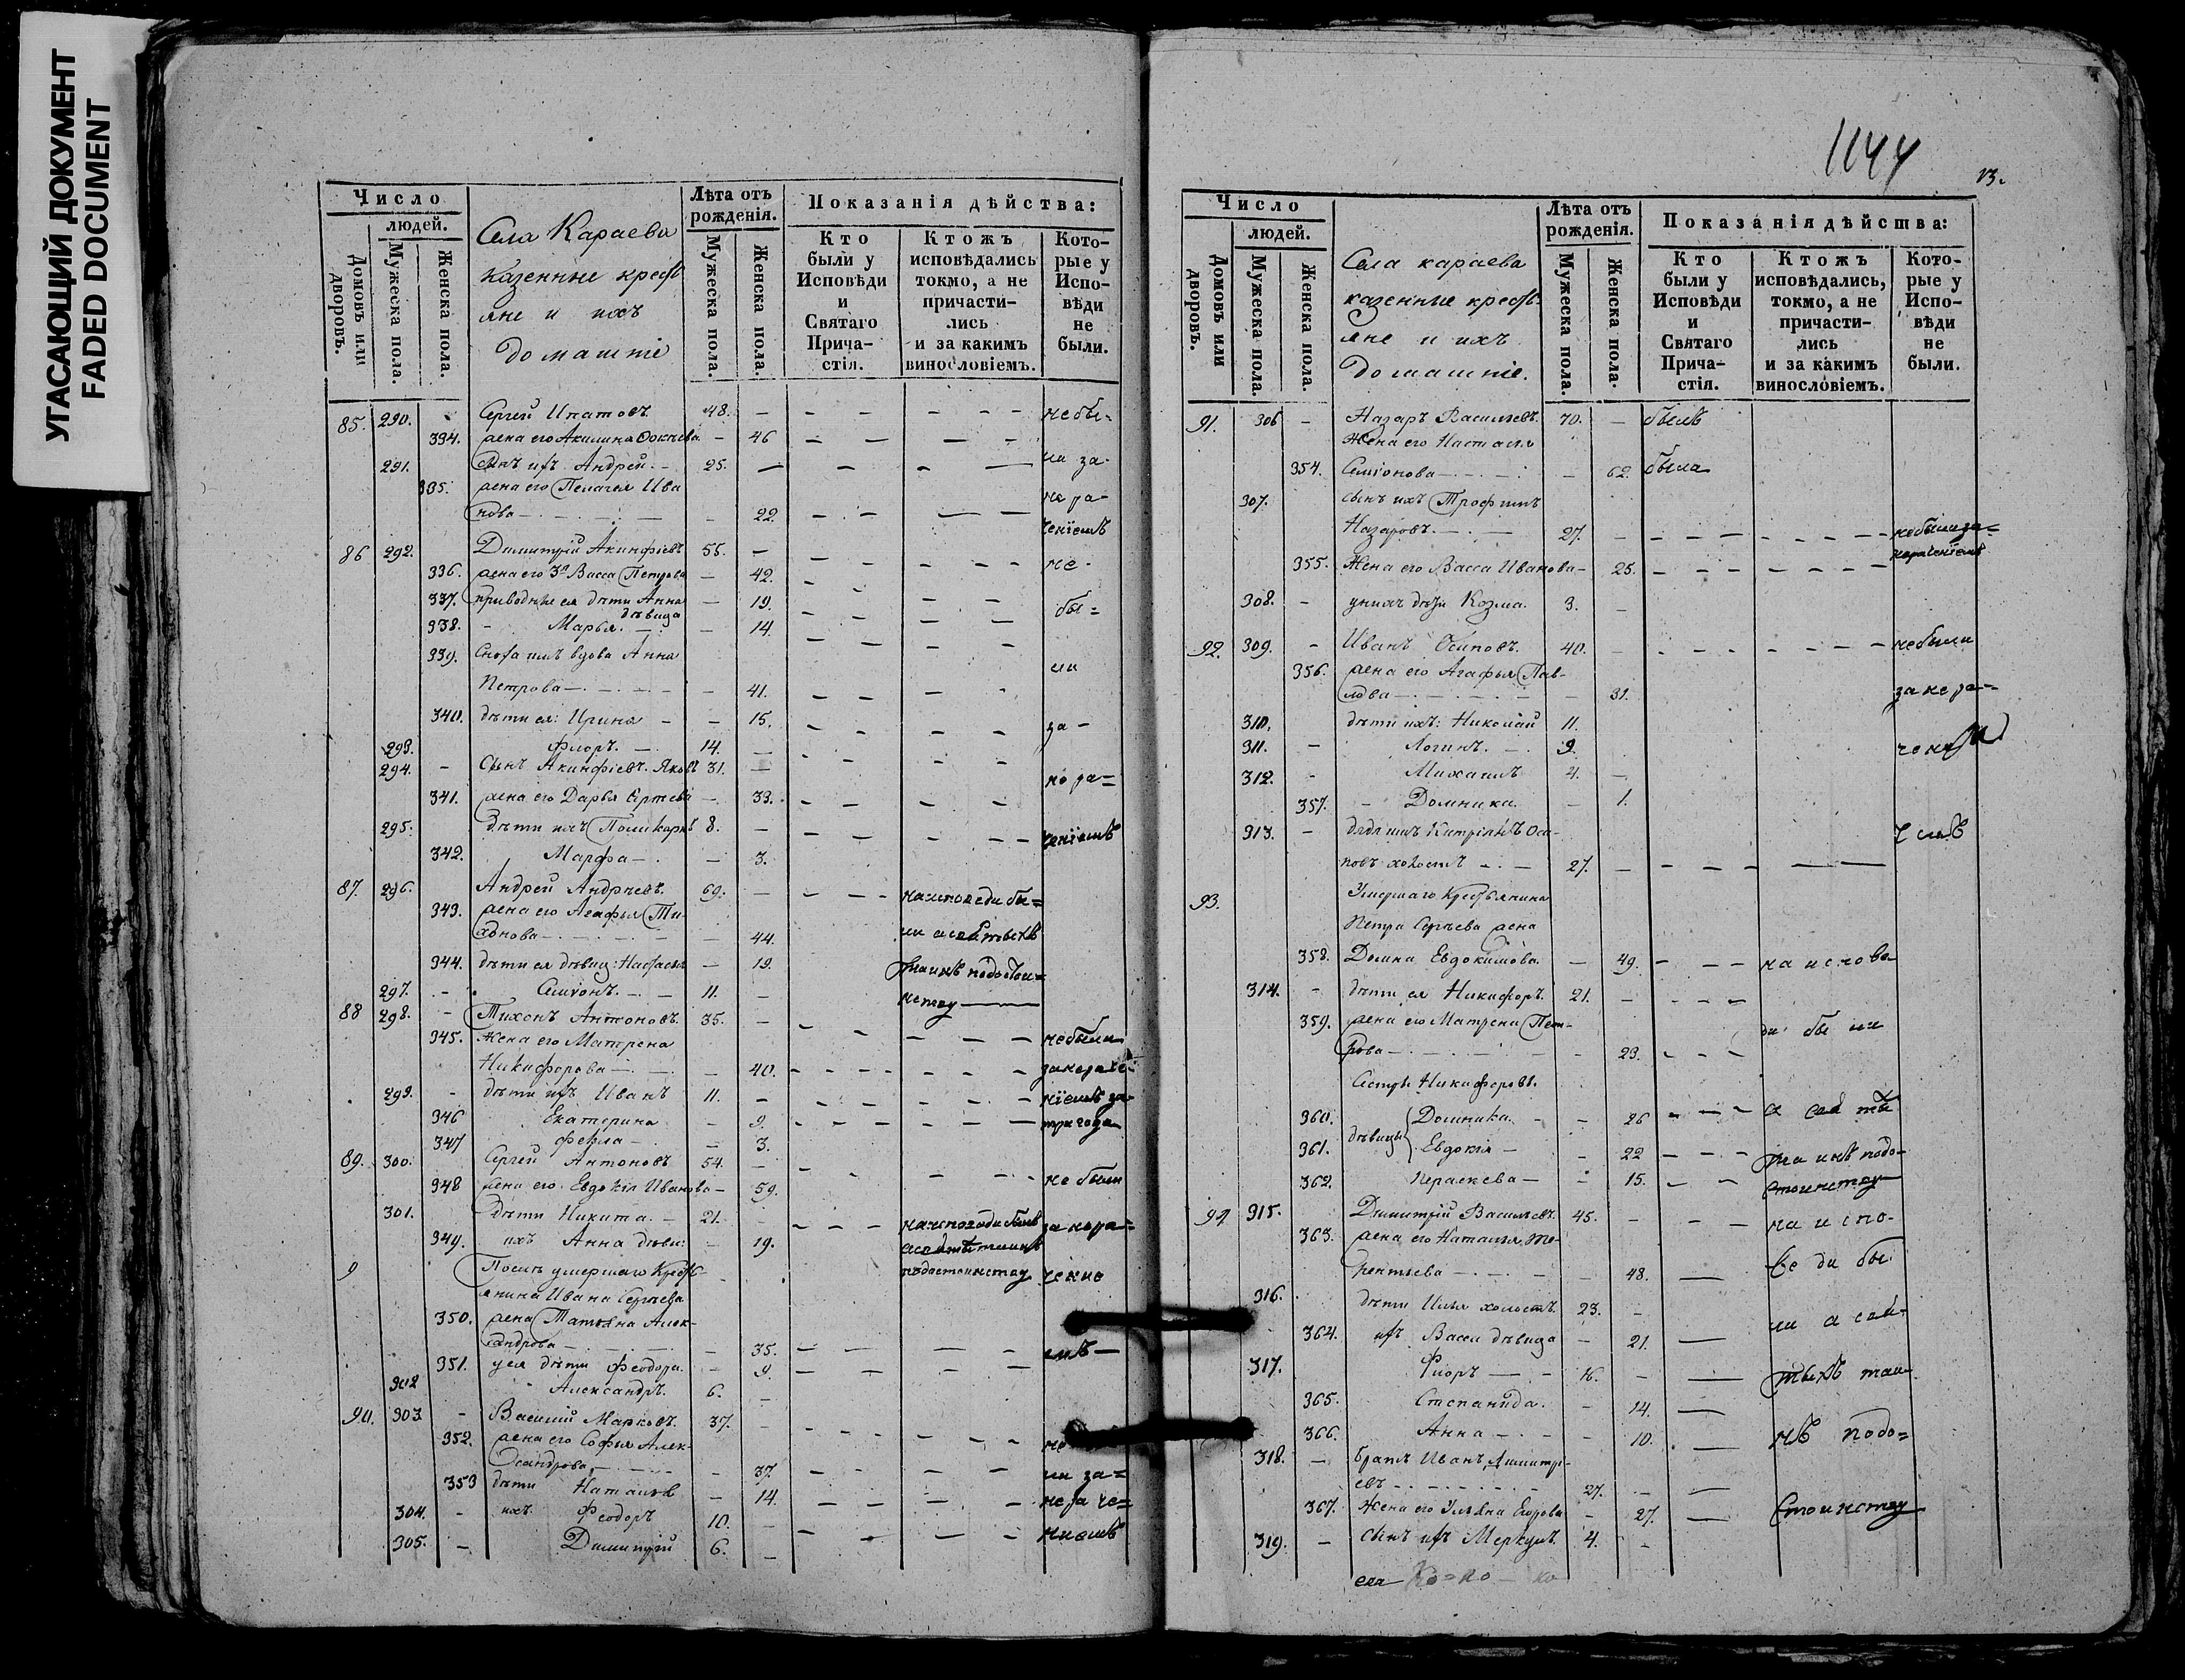 УГАСАЮЩИЙ ДОКУМЕНТ
FADED DOCUMENT
Число
людей.
Домовъ или дворовъ.
Мужеска пола.
Женска пола.
Села Караева
казенные крестъ
яне и ихъ
домашніе
Лѣта отъ рожденія.
Мужеска пола.
Женска пола.
Показанія дѣйства:
Кто были у Исповѣди и Святаго Прича-стія.
Ктожъ исповѣдались токмо, а не причасти-лись и за какимъ винословіемъ.
Кото-рые у Испо-вѣди не были.
85. 290. Сергей Ипатовъ 48. — небы-
334. жена его Акилина — 46
291. сынъ ихъ Андрей. 25. — ли за-
335. жена его Пелагея Ива
нова — 22. не ра-
ченіемъ
86 292. Димитрій Акинфіевъ 55. —
336. жена его 3я Васса Петрова — 42. не-
337. приводные ея дѣти Анна — 19.
дѣвица бы=
338. Марья. — 14.
339. Сноха имъ вдова Анна
Петрова — 41. ли
340. дѣти ея: Ирина — 15. за-
293. Флоръ. — 14. —
294. — Сынъ Акинфіевъ. Яковъ 31. — не ра=
341. жена его Дарья Сергеева — 33.
295. дѣти ихъ Поликарпъ 8. — ченіемъ
342. Марфа — 3.
87. 296. Андрей Андреевъ 69. — на исповеди бы=
343. жена его Агафья Ти-
хонова — 44. ли а святыхъ
344. дѣти ея дѣвиц: Настасья — 19. таинъ недостои=
297. — Симіонъ. — 11. — нству
88 298. — Тихонъ Антоновъ. 35. —
345. Жена его Матрена небыли
Никифорова — 40. занераче-
299. — дѣти ихъ Иванъ 11. — ніемъ за-
346 Екатерина — 9. три года
347 Фекла — 3.
89. 300. Сергей Антоновъ 54. —
348 жена его Евдокія Иванова — 59. не были
301. дѣти Никита. — 21. — на исповеди были за нера=
349. ихъ Анна дѣви: — 19. а святыхъ таинъ
9 Послѣ умершаго Крестъ- недостоинству чение
янина Ивана Сергеева
350. жена Татьяна Алек-
сандрова — 35. емъ —
351. у ея дѣти Феодора. — 9.
302 Александръ. 6. —
90. 303. — Василій Марковъ. 37. —
352. жена его Софья Алек- не
сандрова — 37. ли за=
353 дѣти Наталья — 14. не ра че=
304. — ихъ Феодоръ 10. —
305. — Димитрій 6. — ниемъ
1144
13.
Число
людей.
Домовъ или дворовъ.
Мужеска пола.
Женска пола.
Села караева
казенные крестъ-
яне и ихъ
домашніе.
Лѣта отъ рожденія.
Мужеска пола.
Женска пола.
Показанія дѣйства:
Кто были у Исповѣди и Святаго Прича-стія.
Ктожъ исповѣдались, токмо, а не причасти-лись и за какимъ винословіемъ.
Кото-рые у Испо-вѣди не были.
91. 306 — Назаръ Васильевъ. 70. — былъ
Жена его Настасья
354. Симіонова — 62. была
307. сынъ ихъ Трофимъ
Назаровъ. — 27. — небыли за=
355. Жена его Васса Иванова — 25. нераченіемъ
308. — у нихъ дѣти Козма. 3. —
92. 309. — Иванъ Осиповъ. 40. — небыли
356. жена его Агафья Пав-
лова — 31. за не ра-
310. дѣти ихъ: Николай 11.
311. — Логинъ. — 9.
312. — Михаилъ 4. —
357. — Домника. — 1.
313. — дядя имъ Оси-
повъ холостъ — 27. —
93. Умершаго Крестьянина
Петра Сергеева жена
358. Домна Евдокимова. — 49. — на испове
314. — дѣти ея Никифоръ. 21. —
359. жена его Матрена Пет-
рова — 23. ди бы ли
Сестры Никифоровы.
360. дѣвицы Домника. — 26 — а свя ты
361. Евдокія — 22 — таинъ недо-
362. Параскева — 15. — стоинству
94 315. Димитрій Васильевъ 45. — на испо-
363. жена его Наталья Те-
рентьева — 48. — ве ди бы
316. дѣти Илья холостъ 23. —
364. ихъ Васса дѣвица — 21. — ли а свя-
317. Флоръ — 16. — тыхъ таи
365. Степанида. — 14. —
366. Анна — 10. — нъ недо=
318. — братъ Иванъ Димитрі-
евъ — 27. —
367. Жена его Ульяна Егорова — 27. — стоинству
319. — сынъ ихъ Меркулъ. 4. —